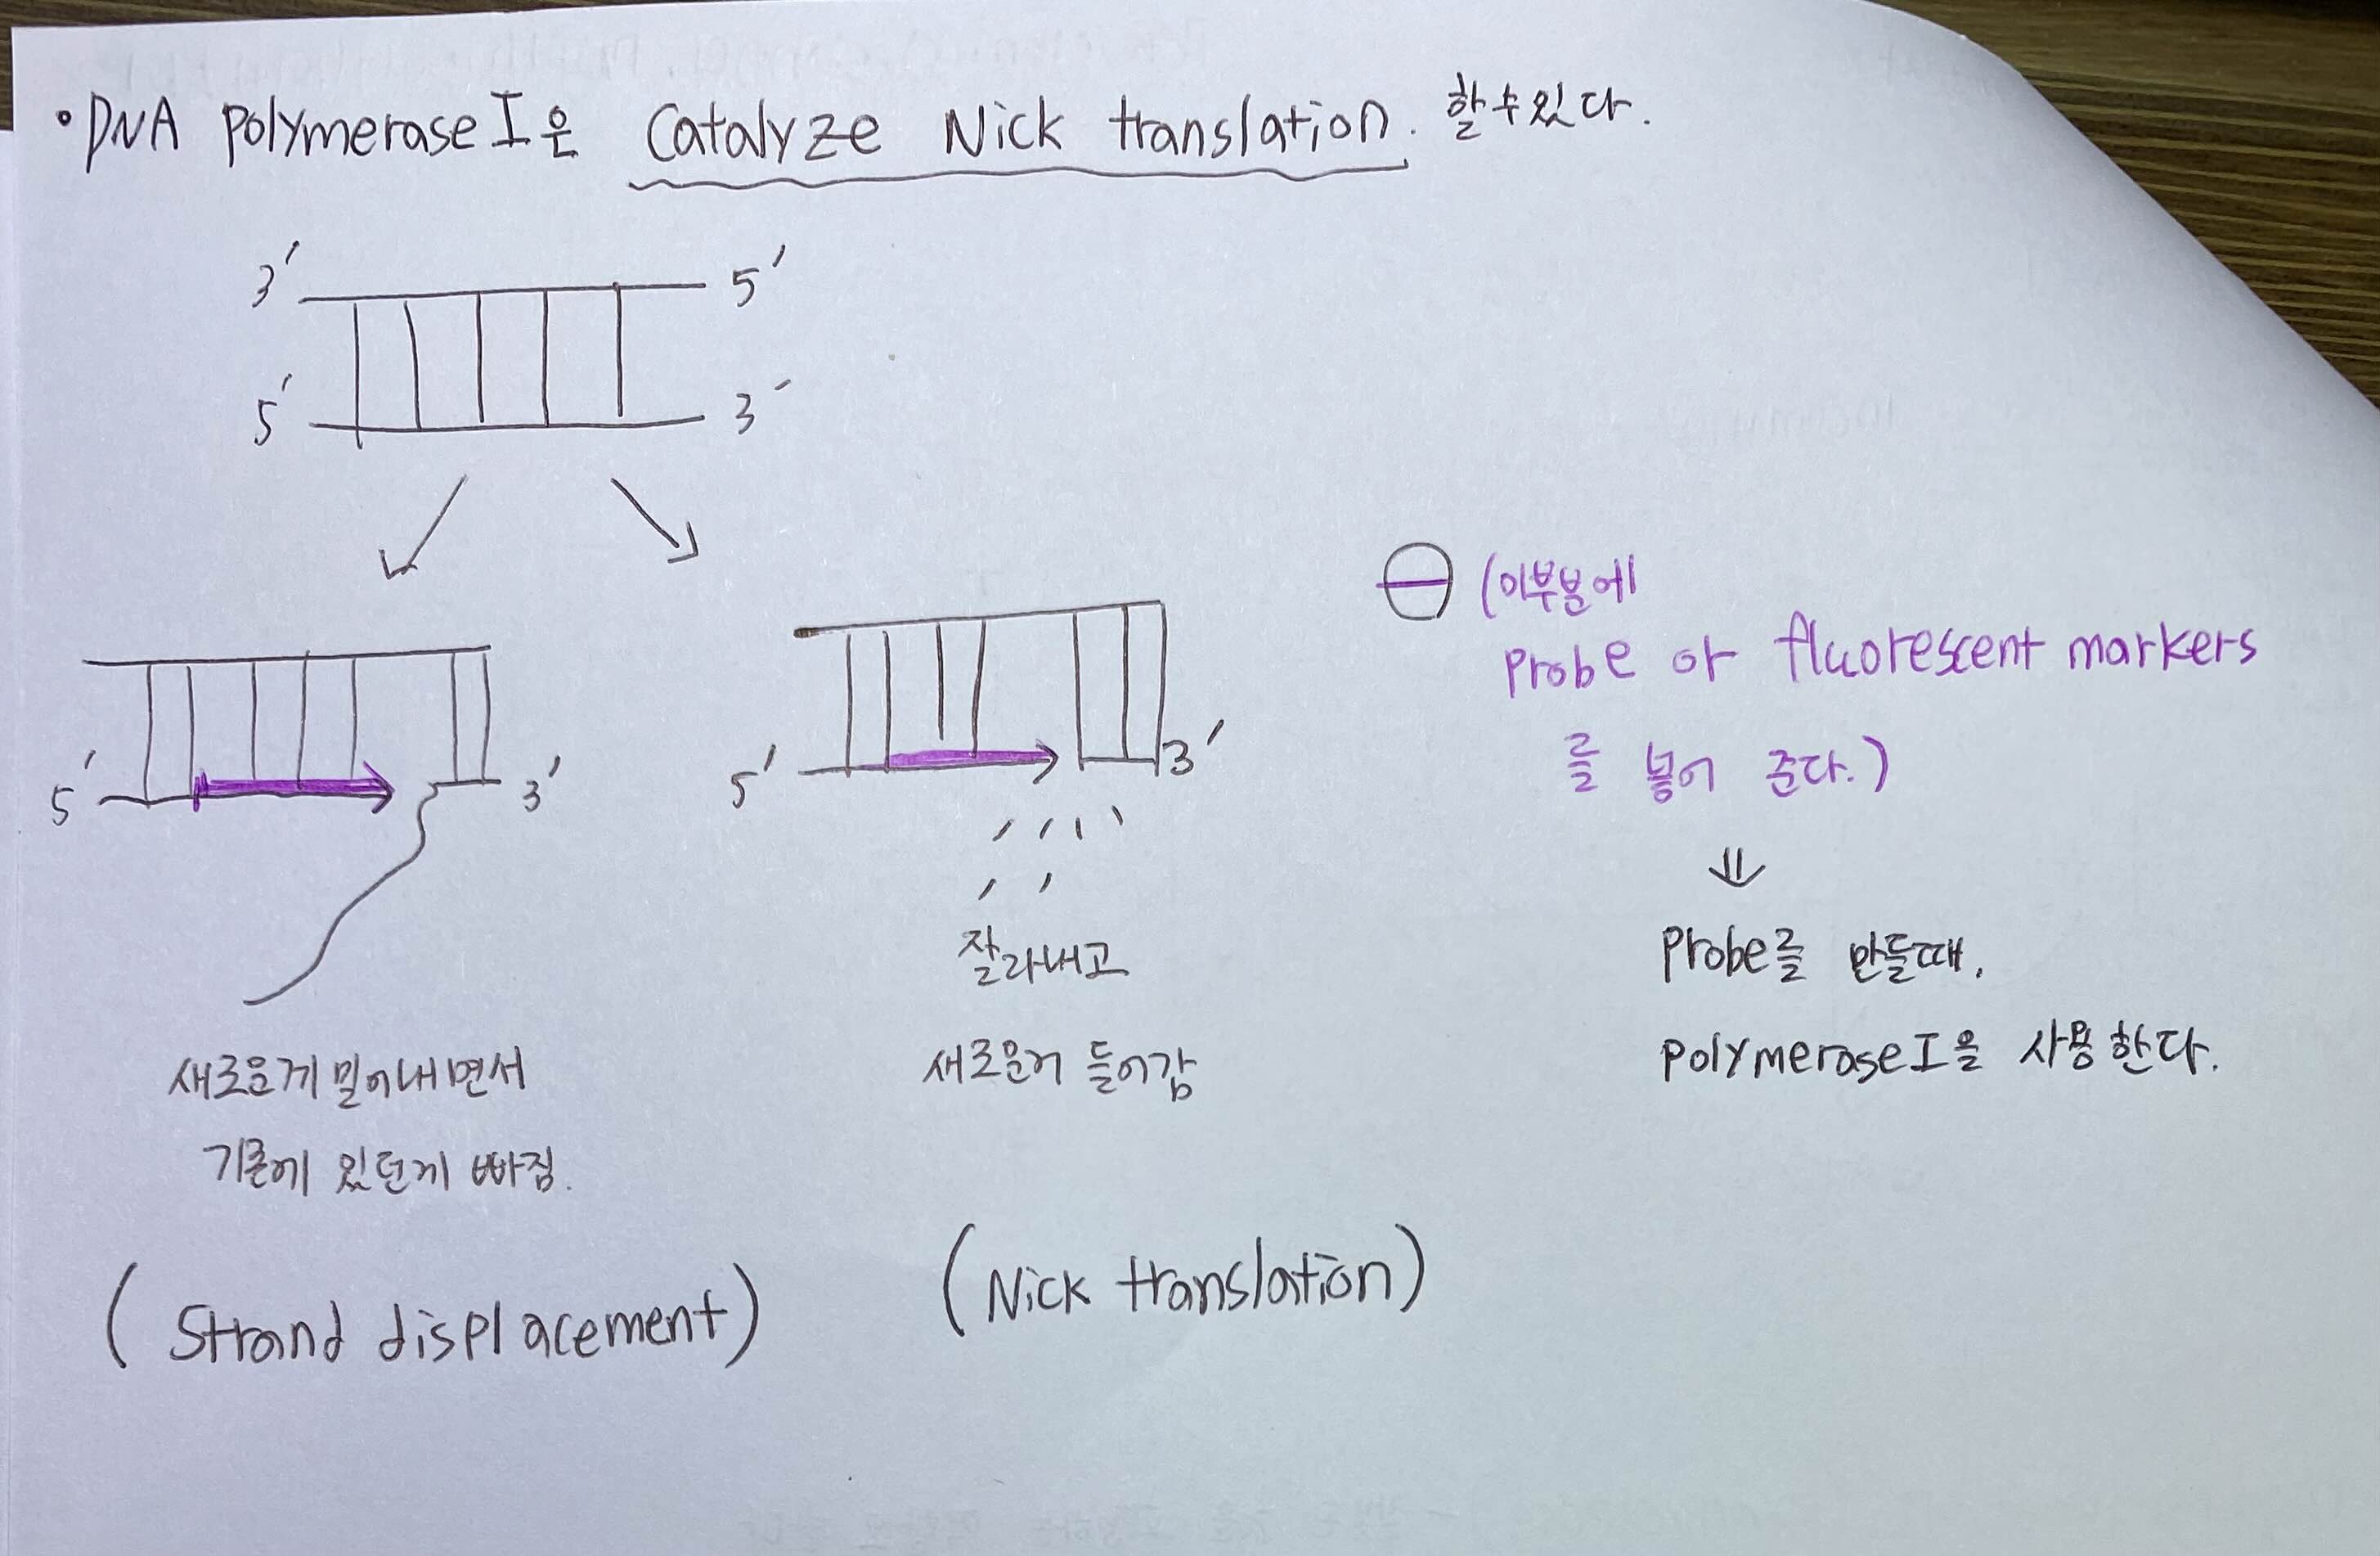 • DNA polymerase I은 Catalyze Nick translation. 할 수 있다.
3' 5'
5' 3'
5' 3'
새로운게 밀어내면서
기존에 있던게 빠짐.
(Strand displacement)
5' 3'
잘라내고
새로운거 들어감
(Nick translation)
(이부분에
Probe or fluorescent markers
를 넣어 준다.)
⇓
Probe를 만들때,
polymerase I을 사용한다.